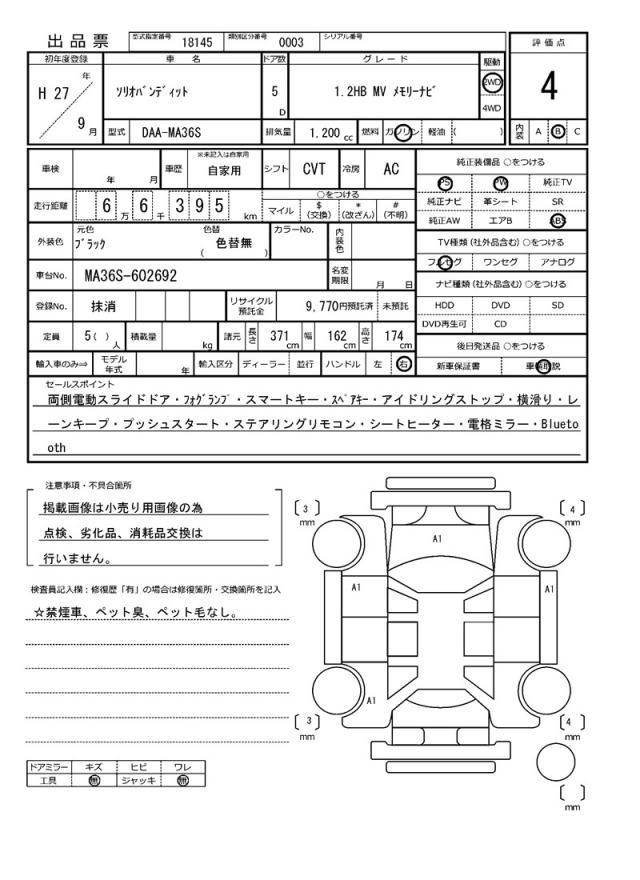 出品票 型式指定番号 18145 類別区分番号 0003 シリアル番号
評価点
4
内装 A B C
初年度登録 車名 ドア数 グレード 駆動
H 27 年 9 月
ソリオバンディット 5 D 1.2HB MV メモリーナビ 2WD
4WD
型式 DAA-MA36S 排気量 1,200 cc 燃料 ガソリン 軽油 ( )
車検 年 月 車歴 ※未記入は自家用 自家用 シフト CVT 冷房 AC
走行距離 6 万 6 千 3 9 5 km ○をつける
マイル $ (交換) * (改ざん) # (不明)
外装色 元色 ブラック 色替 ( 色替無 ) カラーNo. 内装色
車台No. MA36S-602692 名変期限 月 日
登録No. 抹消 リサイクル預託金 9,770円預託済 未預託
定員 5( ) 人 積載量 kg 諸元 長さ 371 cm 幅 162 cm 高さ 174 cm
輸入車のみ⇒ モデル年式 年 輸入区分 ディーラー 並行 ハンドル 左 右
純正装備品 ○をつける
PS PW 純正TV
純正ナビ 革シート SR
純正AW エアB ABS
TV種類 (社外品含む) ○をつける
フルセグ ワンセグ アナログ
ナビ種類 (社外品含む) ○をつける
HDD DVD SD
DVD再生可 CD
後日発送品 ○をつける
新車保証書 車輌取説
セールスポイント
両側電動スライドドア・フォグランプ・スマートキー・スペアキー・アイドリングストップ・横滑り・レ
ーンキープ・プッシュスタート・ステアリングリモコン・シートヒーター・電格ミラー・Blueto
oth
注意事項・不具合箇所
掲載画像は小売り用画像の為
点検、劣化品、消耗品交換は
行いません。
検査員記入欄：修復歴「有」の場合は修復箇所・交換箇所を記入
☆禁煙車、ペット臭、ペット毛なし。
ドアミラー キズ ヒビ ワレ
工具 無 ジャッキ 無
〔 3 〕 mm
〔 4 〕 mm
A1
A1
A1
A1
〔 3 〕 mm
〔 4 〕 mm
〔 〕 mm